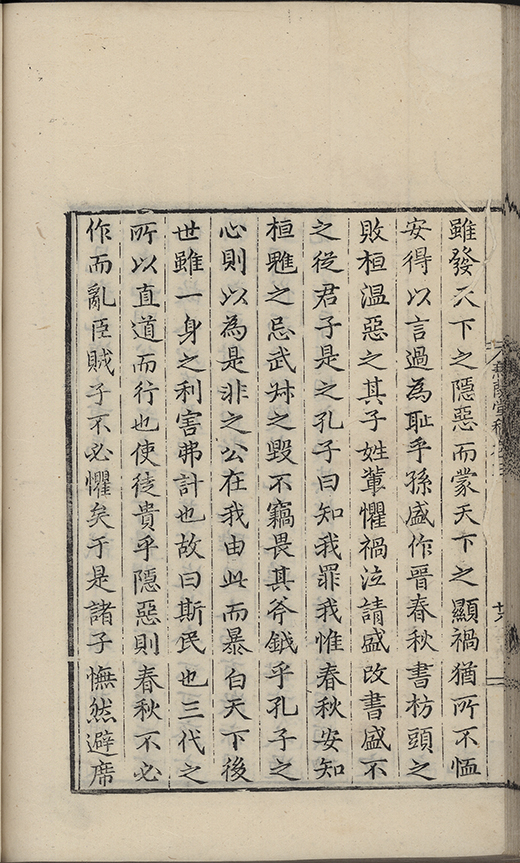 雖發天下之隱惡而蒙天下之顯禍猶所不恤
安得以言過為恥乎孫盛作晉春秋書枋頭之
敗桓溫惡之其子姓輩懼禍泣請盛改書盛不
之從君子是之孔子曰知我罪我惟春秋安知
桓魋之忌武叔之毀不竊畏其斧鉞乎孔子之
心則以為是非之公在我由此而暴白天下後
世雖一身之利害弗計也故曰斯民也三代之
所以直道而行也使徒貴乎隱惡則春秋不必
作而亂臣賊子不必懼矣于是諸子憮然避席